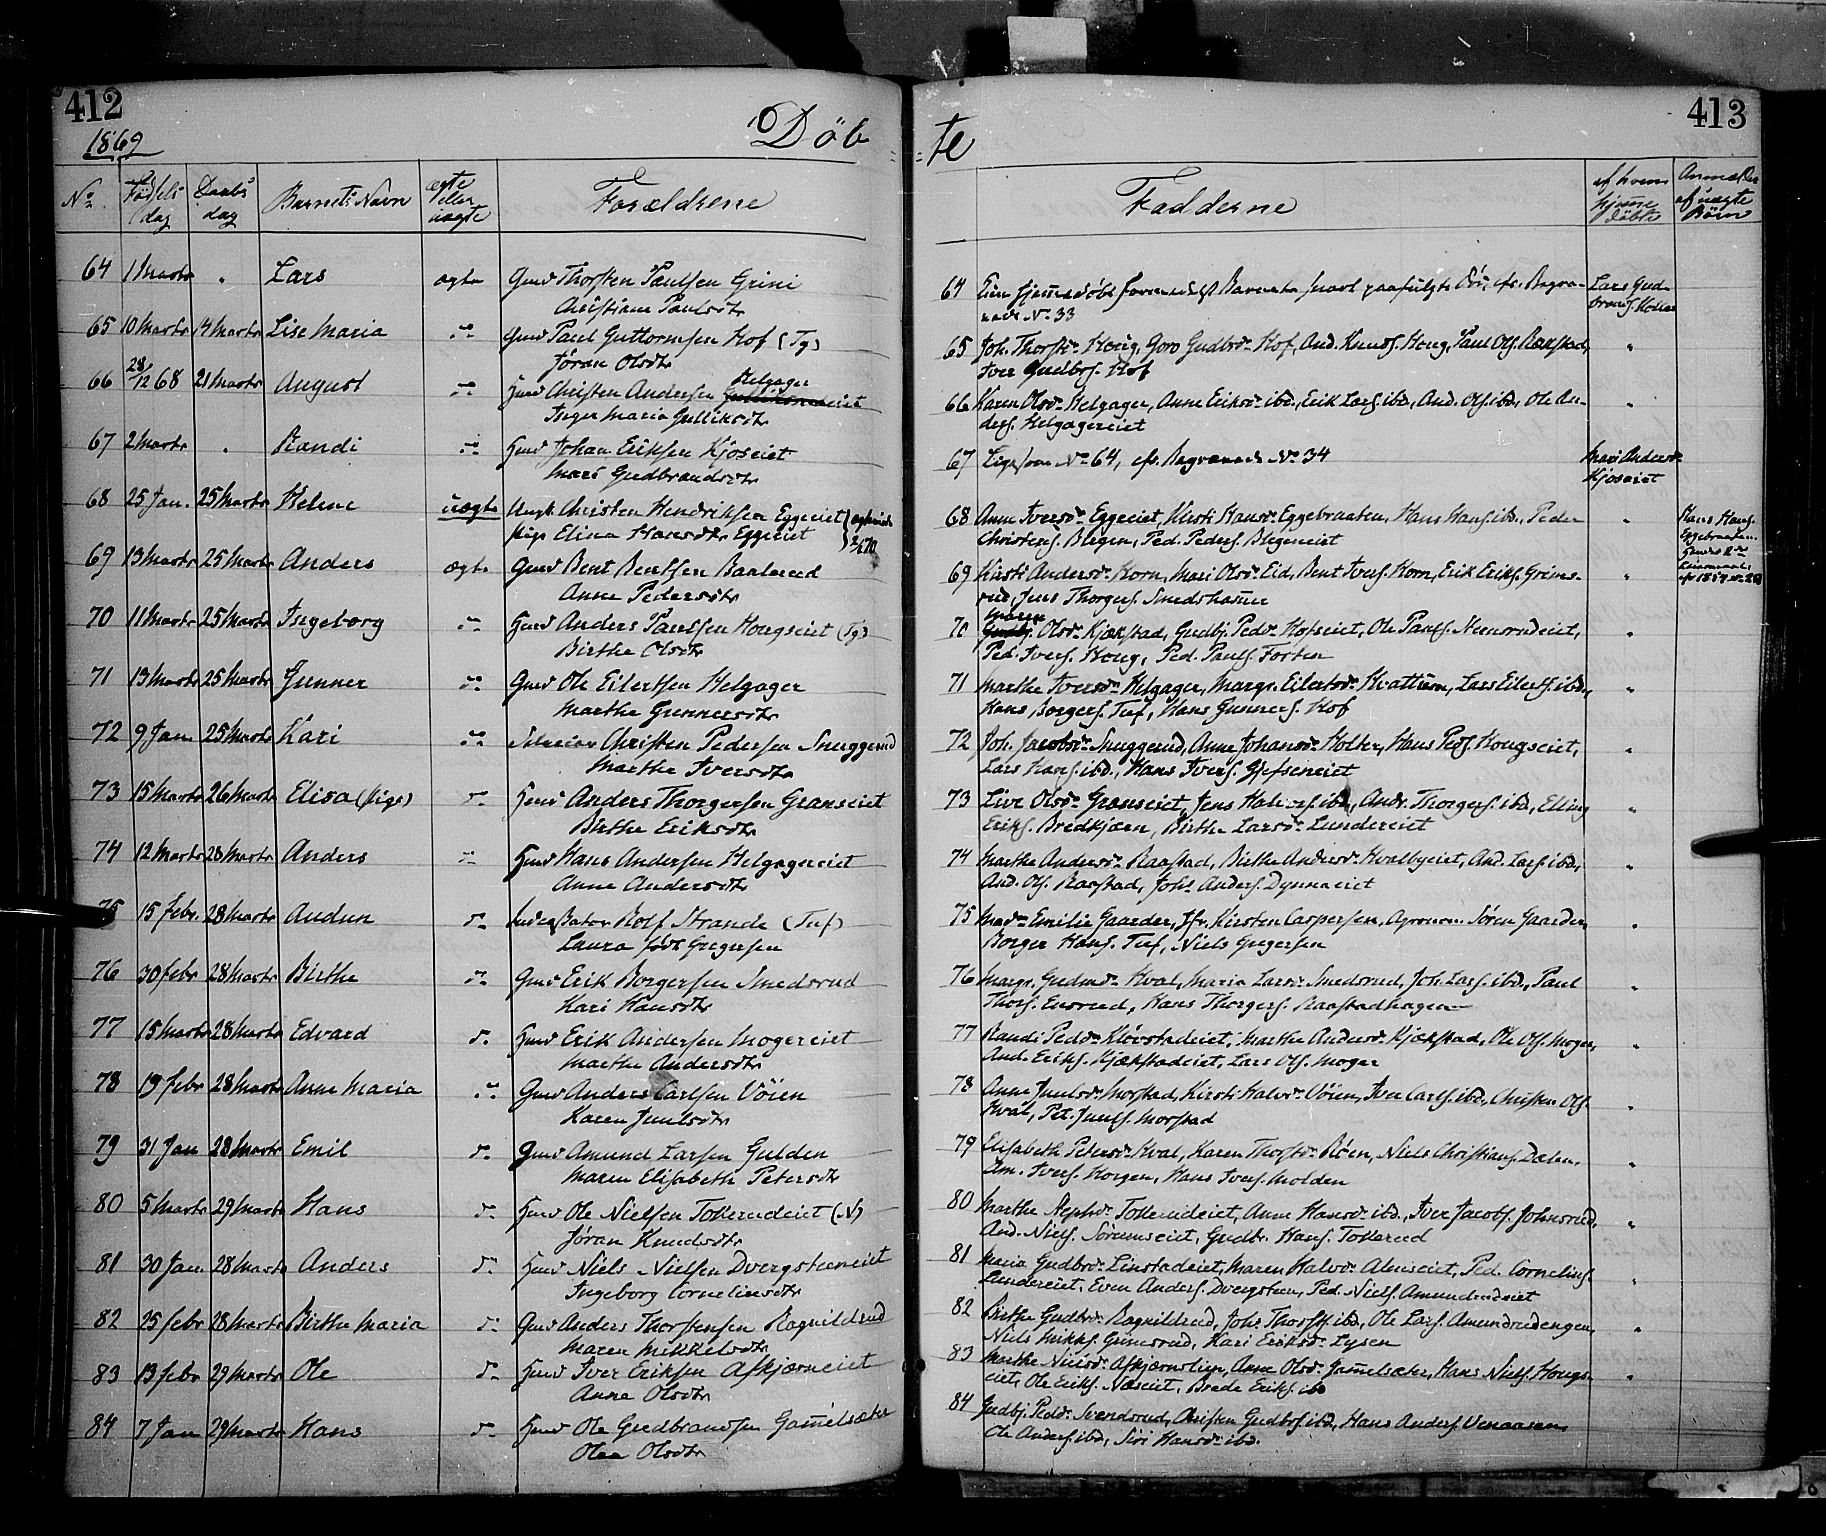 412
1869
Døb
No
Fødsels
dag
Daabs
dag
Barnets Navn
ægte
eller
uægte
Forældrene
64 11 Marts " Lars ægte Gmd Thorsten Paulsen Grini
Christiane Paulsdtr
65 10 Marts 14 Marts Lise Maria do Gmd Paul Guttormsen Hof (Tg)
Jøran Olsdtr
66 28/12 68 21 Marts August do Hmd Christen Andersen Helgager
Inger Maria Gulliksdtr
67 2 Marts " Randi do Hmd Johan Eriksen Kjoseiet
Mari Gudbrandsdtr
68 25 Jan. 25 Marts Helene uægte Ungk. Christen Hendriksen Eggeeiet
Pige Elina Hansdtr Eggeeiet
69 13 Marts 25 Marts Anders ægte Gmd Bent Bentsen Baalerud
Anne Pedersdtr
70 11 Marts 25 Marts Ingeborg do Hmd Anders Paulsen Hougseiet (Tg)
Birthe Olsdtr
71 13 Marts 25 Marts Gunner do Gmd Ole Eilertsen Helgager
Marthe Gunnersdtr
72 9 Jan. 25 Marts Kari do Christen Pedersen Snuggerud
Marthe Iversdtr
73 15 Marts 26 Marts Elisa (Pige) do Hmd Anders Thorgersen Granseiet
Birthe Eriksdtr
74 12 Marts 28 Marts Anders do Hmd Hans Andersen Helgagereiet
Anne Andersdtr
75 15 febr. 28 Marts Audun do Rolf Strande (Tuf)
Laura født Gregersen
76 20 febr 28 Marts Birthe do Gmd Erik Borgersen Smedsrud
Kari Hansdtr
77 15 Marts 28 Marts Edvard do Hmd Erik Andersen Mogereiet
Marthe Andersdtr
78 19 febr 28 Marts Anne Maria do Gmd Anders Carlsen Vøien
Karen Juulsdtr
79 31 Jan 28 Marts Emil do Gmd Amund Larsen Gulden
Maren Elisabeth Petersdtr
80 5 Marts 29 Marts Hans do Hmd Ole Nielsen Tokerudeiet (N)
Jøran Knudsdtr
81 30 Jan. 28 Marts Anders do Hmd Niels Nielsen Dvergsteeneiet
Ingeborg Corneliusdtr
82 25 febr 28 Marts Birthe Maria do Gmd Anders Thorstensen Ragnildsrud
Maren Mikkelsdtr
83 13 febr 29 Marts Ole do Hmd Iver Eriksen Askjærneiet
Anne Olsdtr
84 7 Jan 29 Marts Hans do Hmd Ole Gudbrandsen Gamelsæter
Olea Olsdtr
413
te
Fadderne
af hvem
hjemme
døbte
Anmælder
af uægte
Børn
64 hjemmedøbt formedelst Barnets snart paafulgte Død, cfr. Begra- Lars Gud-
vede No 33
65 Joh. Thorstdr Houg, Goro Gudbrdr Hof, And. Knuds. Houg, Paul Ols. Rækstad, "
Iver Gudbrs. Hof
66 Karen Olsdr Helgager, Anne Eriksdr ibd., Erik Lars. ibd., And. Ols. ibd., Ole An- "
ders. Helgagereiet
67 Ligesom No 64, cfr. Begravede No 34 Mari Andersdr
Kjoseiet
68 Anne Iversdr Eggeeiet, Kirsti Hansdr Eggebraaten, Hans Hans. ibd., Peder " Hans Hans.
Christens. Blegen, Ped. Peders. Blegeneiet Eggebraaten
69 Kirsti Andersdr Horn, Mari Olsdr Eid, Bent Ivers. Horn, Erik Eriks. Grims- "
rud, Jens Thorgers. Smedshamer
70 Maren Olsdr Kjækstad, Gudbj. Peddr Hofseiet, Ole Pauls. Nusrudeiet, "
Ped. Ivers. Houg, Ped. Pauls. Forten
71 Marthe Iversdr Helgager, Margr. Eilertsdr Kvattum, Lars Eilerts. ibd., "
Hans Borgers. Tuf, Hans Gunners. Hof
72 Joh. Jacobsdr Snuggerud, Anne Johansdr Holter, Hans Peds. Hougseiet, "
Lars Hans. ibd., Hans Ivers. Gjefseneiet
73 Live Olsdr Granseiet, Jens Halvors. ibd., Andr. Thorgers. ibd., Elling "
Eriks. Bredkjærn, Birthe Larsdr Lundereiet
74 Marthe Andersdr Raastad, Birthe Andersdr Hvalbyeiet, And. Lars. ibd., "
And. Ols. Raastad, Johs Anders. Dynnaeiet
75 Madm Emilie Gaarder, Jfr. Kirsten Caspersen, Agronom Søren Gaarder, "
Borger Hans. Tuf, Niels Gregersen
76 Margr. Gudmdr Hval, Maria Larsdr Smedsrud, Joh. Lars. ibd., Paul "
Thors. Ensrud, Hans Thorgers. Raastadhagen
77 Randi Peddr Kløvstadeiet, Marthe Andersdr Kjækstad, Ole Ols. Moger, "
And. Eriks. Kjækstadeiet, Lars Ols. Moger
78 Anne Juulsdr Morstad, Kirsti Halvdr Vøien, Iver Carls. ibd., Christen Ols. "
Hval, Pet. Juuls. Morstad
79 Elisabeth Petersdr Hval, Karen Thorstdr Røen, Niels Christians. Dælen, "
Am. Ivers. Horgen, Hans Ivers. Molden
80 Marthe Stephdr Tokerudeiet, Anne Hansdr ibd., Iver Jacobs. Johnsrud, "
And. Niels. Sørumseiet, Gudbr. Hans. Tokerud
81 Maria Gudbrdr Linstadeiet, Maren Halvdr Almseiet, Ped. Cornelius. "
Lundereiet, Even Anders. Dvergsteen, Ped. Niels. Amundrudeiet
82 Birthe Gudbrdr Ragnildsrud, Johs Thorsts. ibd., Ole Lars. Amundrudengen, "
Niels Mikks. Grimsrud, Kari Eriksdr Lysen
83 Marthe Nielsdr Askjærnslien, Anne Olsdr Gamelsæter, Hans Niels. Hougs- "
eiet, Ole Eriks. Næseiet, Brede Eriks. ibd
84 Gudbj. Peddr Svendsrud, Christen Gudbrs. ibd., Hans Anders. Venaasen,
Ole Anders. ibd., Siri Hansdr ibd.